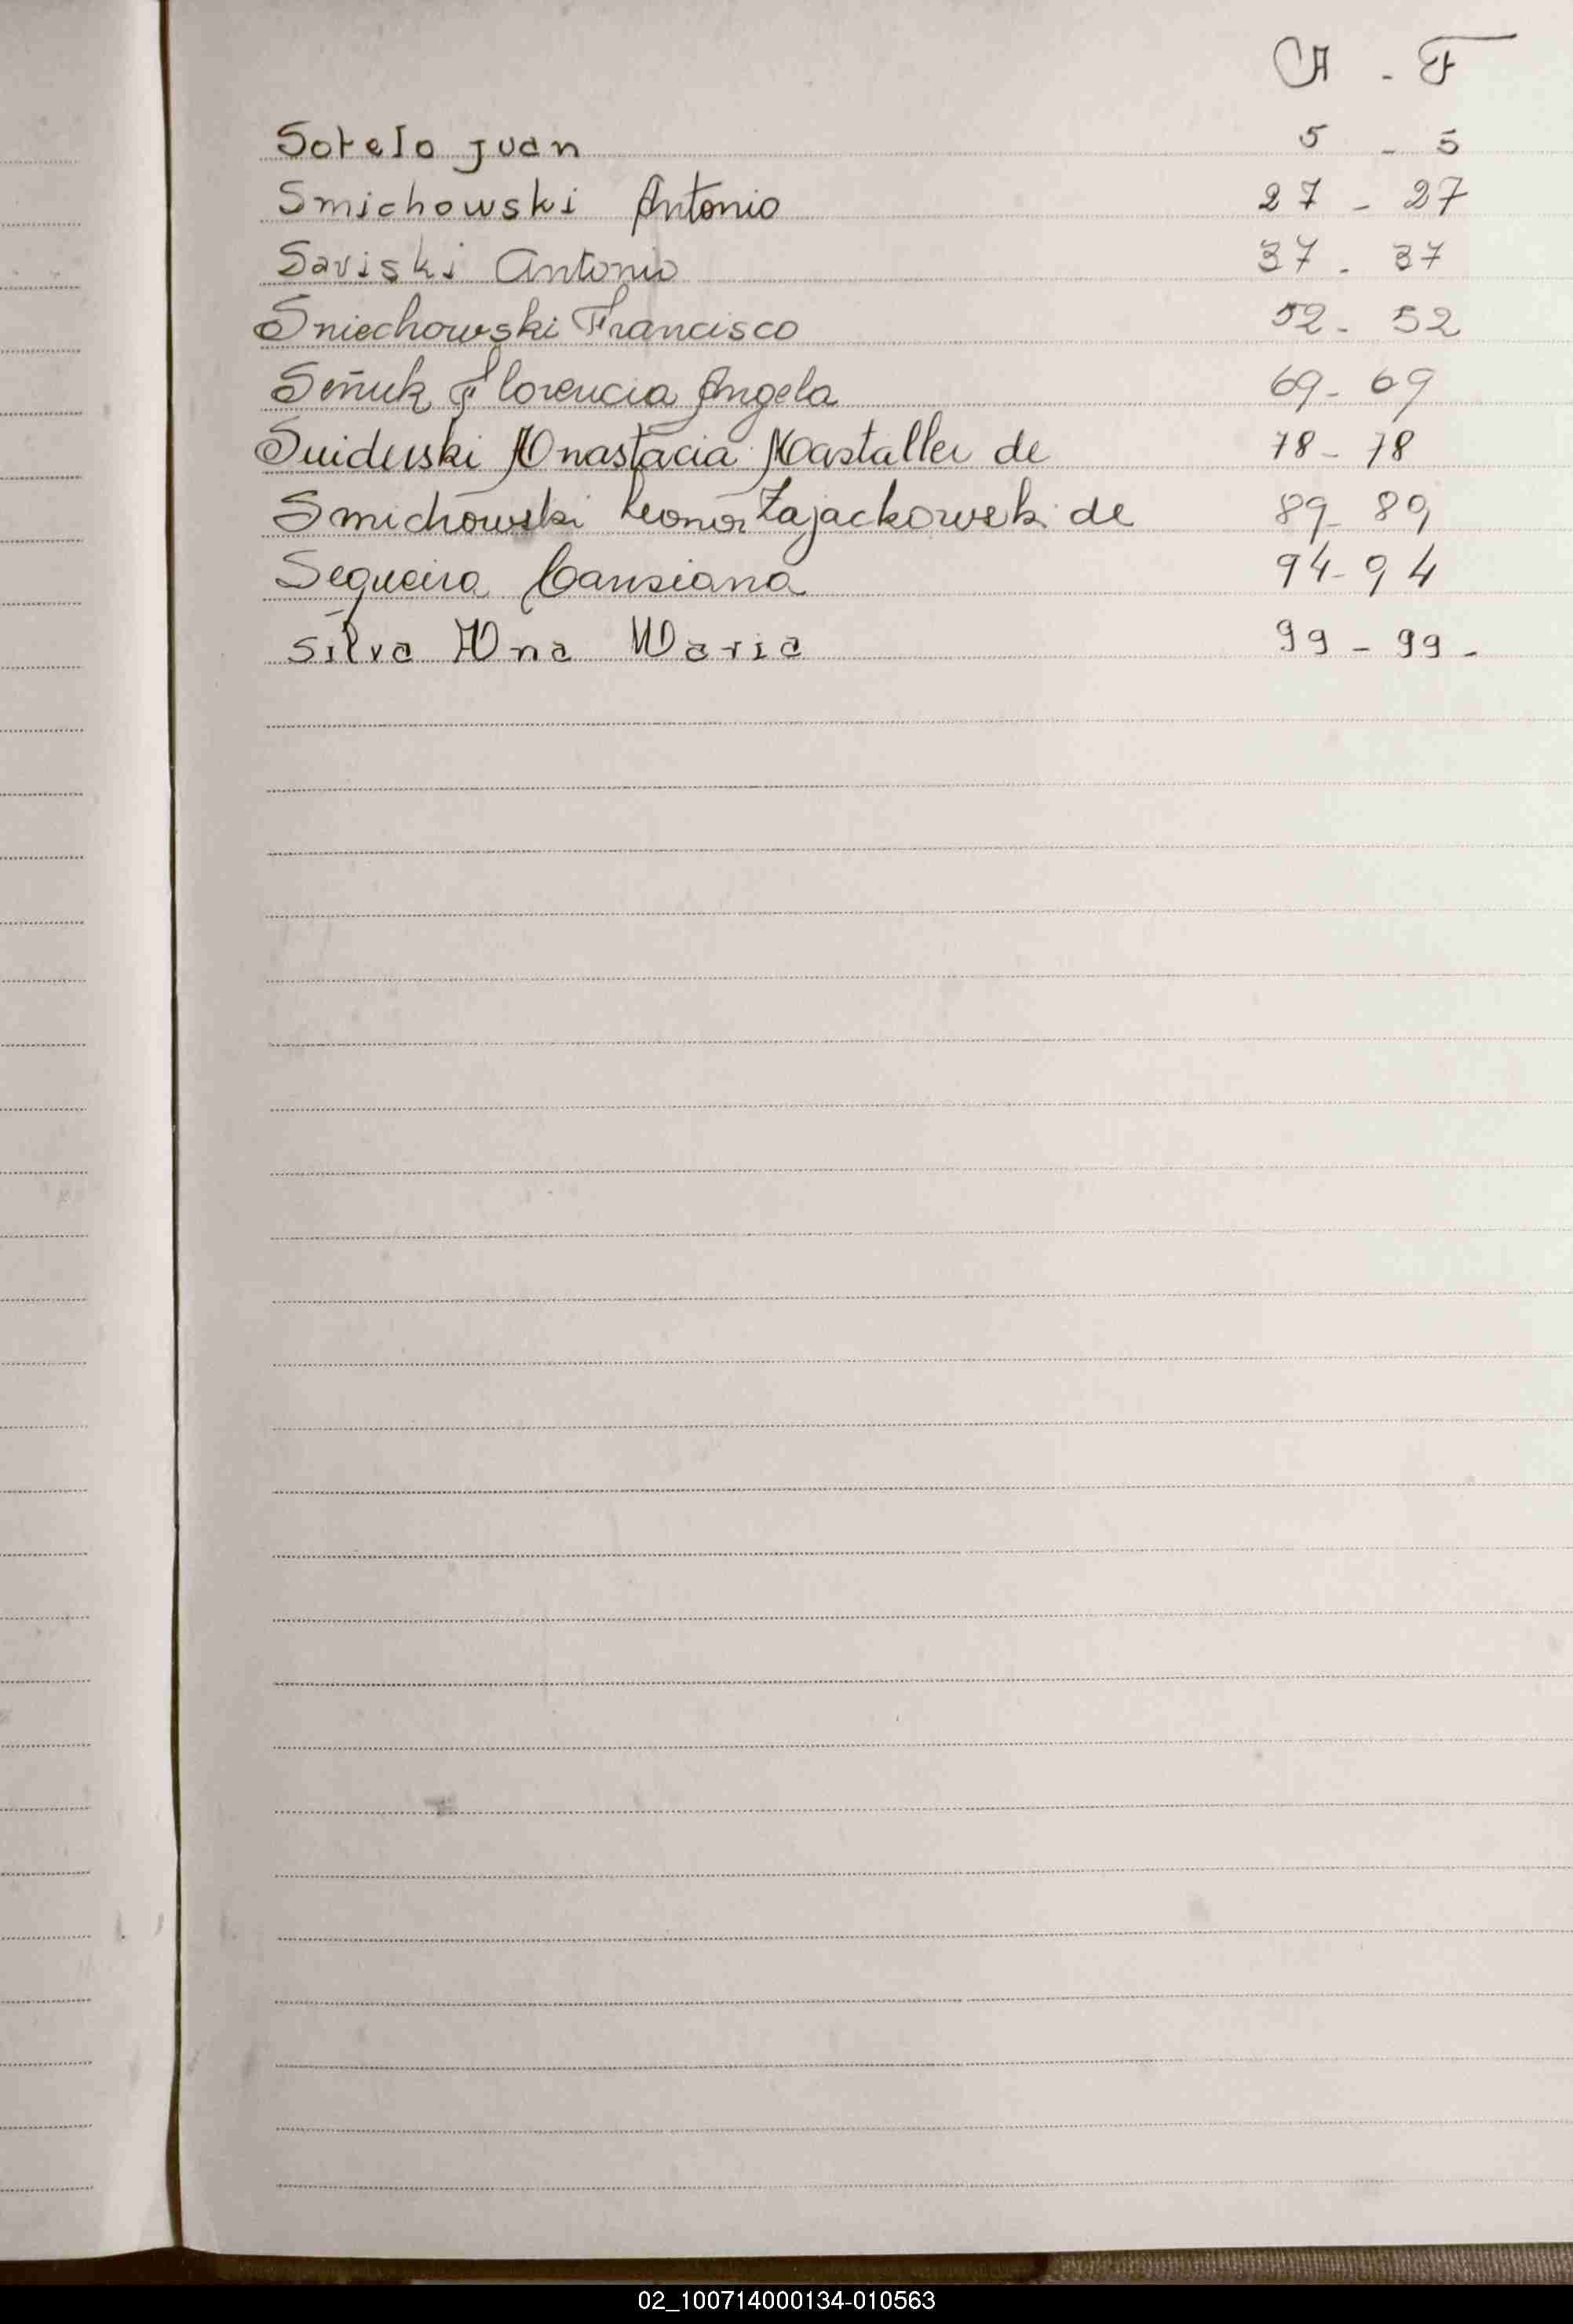 A - F
Sotelo Juan 5 - 5
Smichowski Antonio 27 - 27
Saviski Antonio 37 - 37
Sniechowski Francisco 52 - 52
Señuk Florencia Angela 69 - 69
Suiderski Anastacia Mastaller de 78 - 78
Smichowski Leonor Zajackowsk de 89 - 89
Sequeira Cansiana 94 - 94
Silva Ana Maria 99 - 99 -
02_100714000134-010563